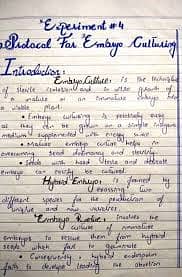 "Experiment #4
Protocol For Embryo Culturing
Introduction:
Embryo Culture: is the technique
of sterile isolation and in vitro growth of
a mature or an immature embryo
a viable plant
• Embryo culturing is relatively easy
as they can be grown on a simple inorganic
medium supplemented with energy source
• Mature embryo culture helps in
overcoming seed dormancy and sterility.
• Seeds with hard testa and
embryo can easily be cultured.
Hybrid Embryo: is formed by
crossing two
different species for the production of
hybrid and new varieties.
Embryo Rescue: Involves the
culture of immature
embryos to rescue them from hybrid
seeds when fail to germinate
• Consequently, hybrid endosperm
fails to develop leading the abortion